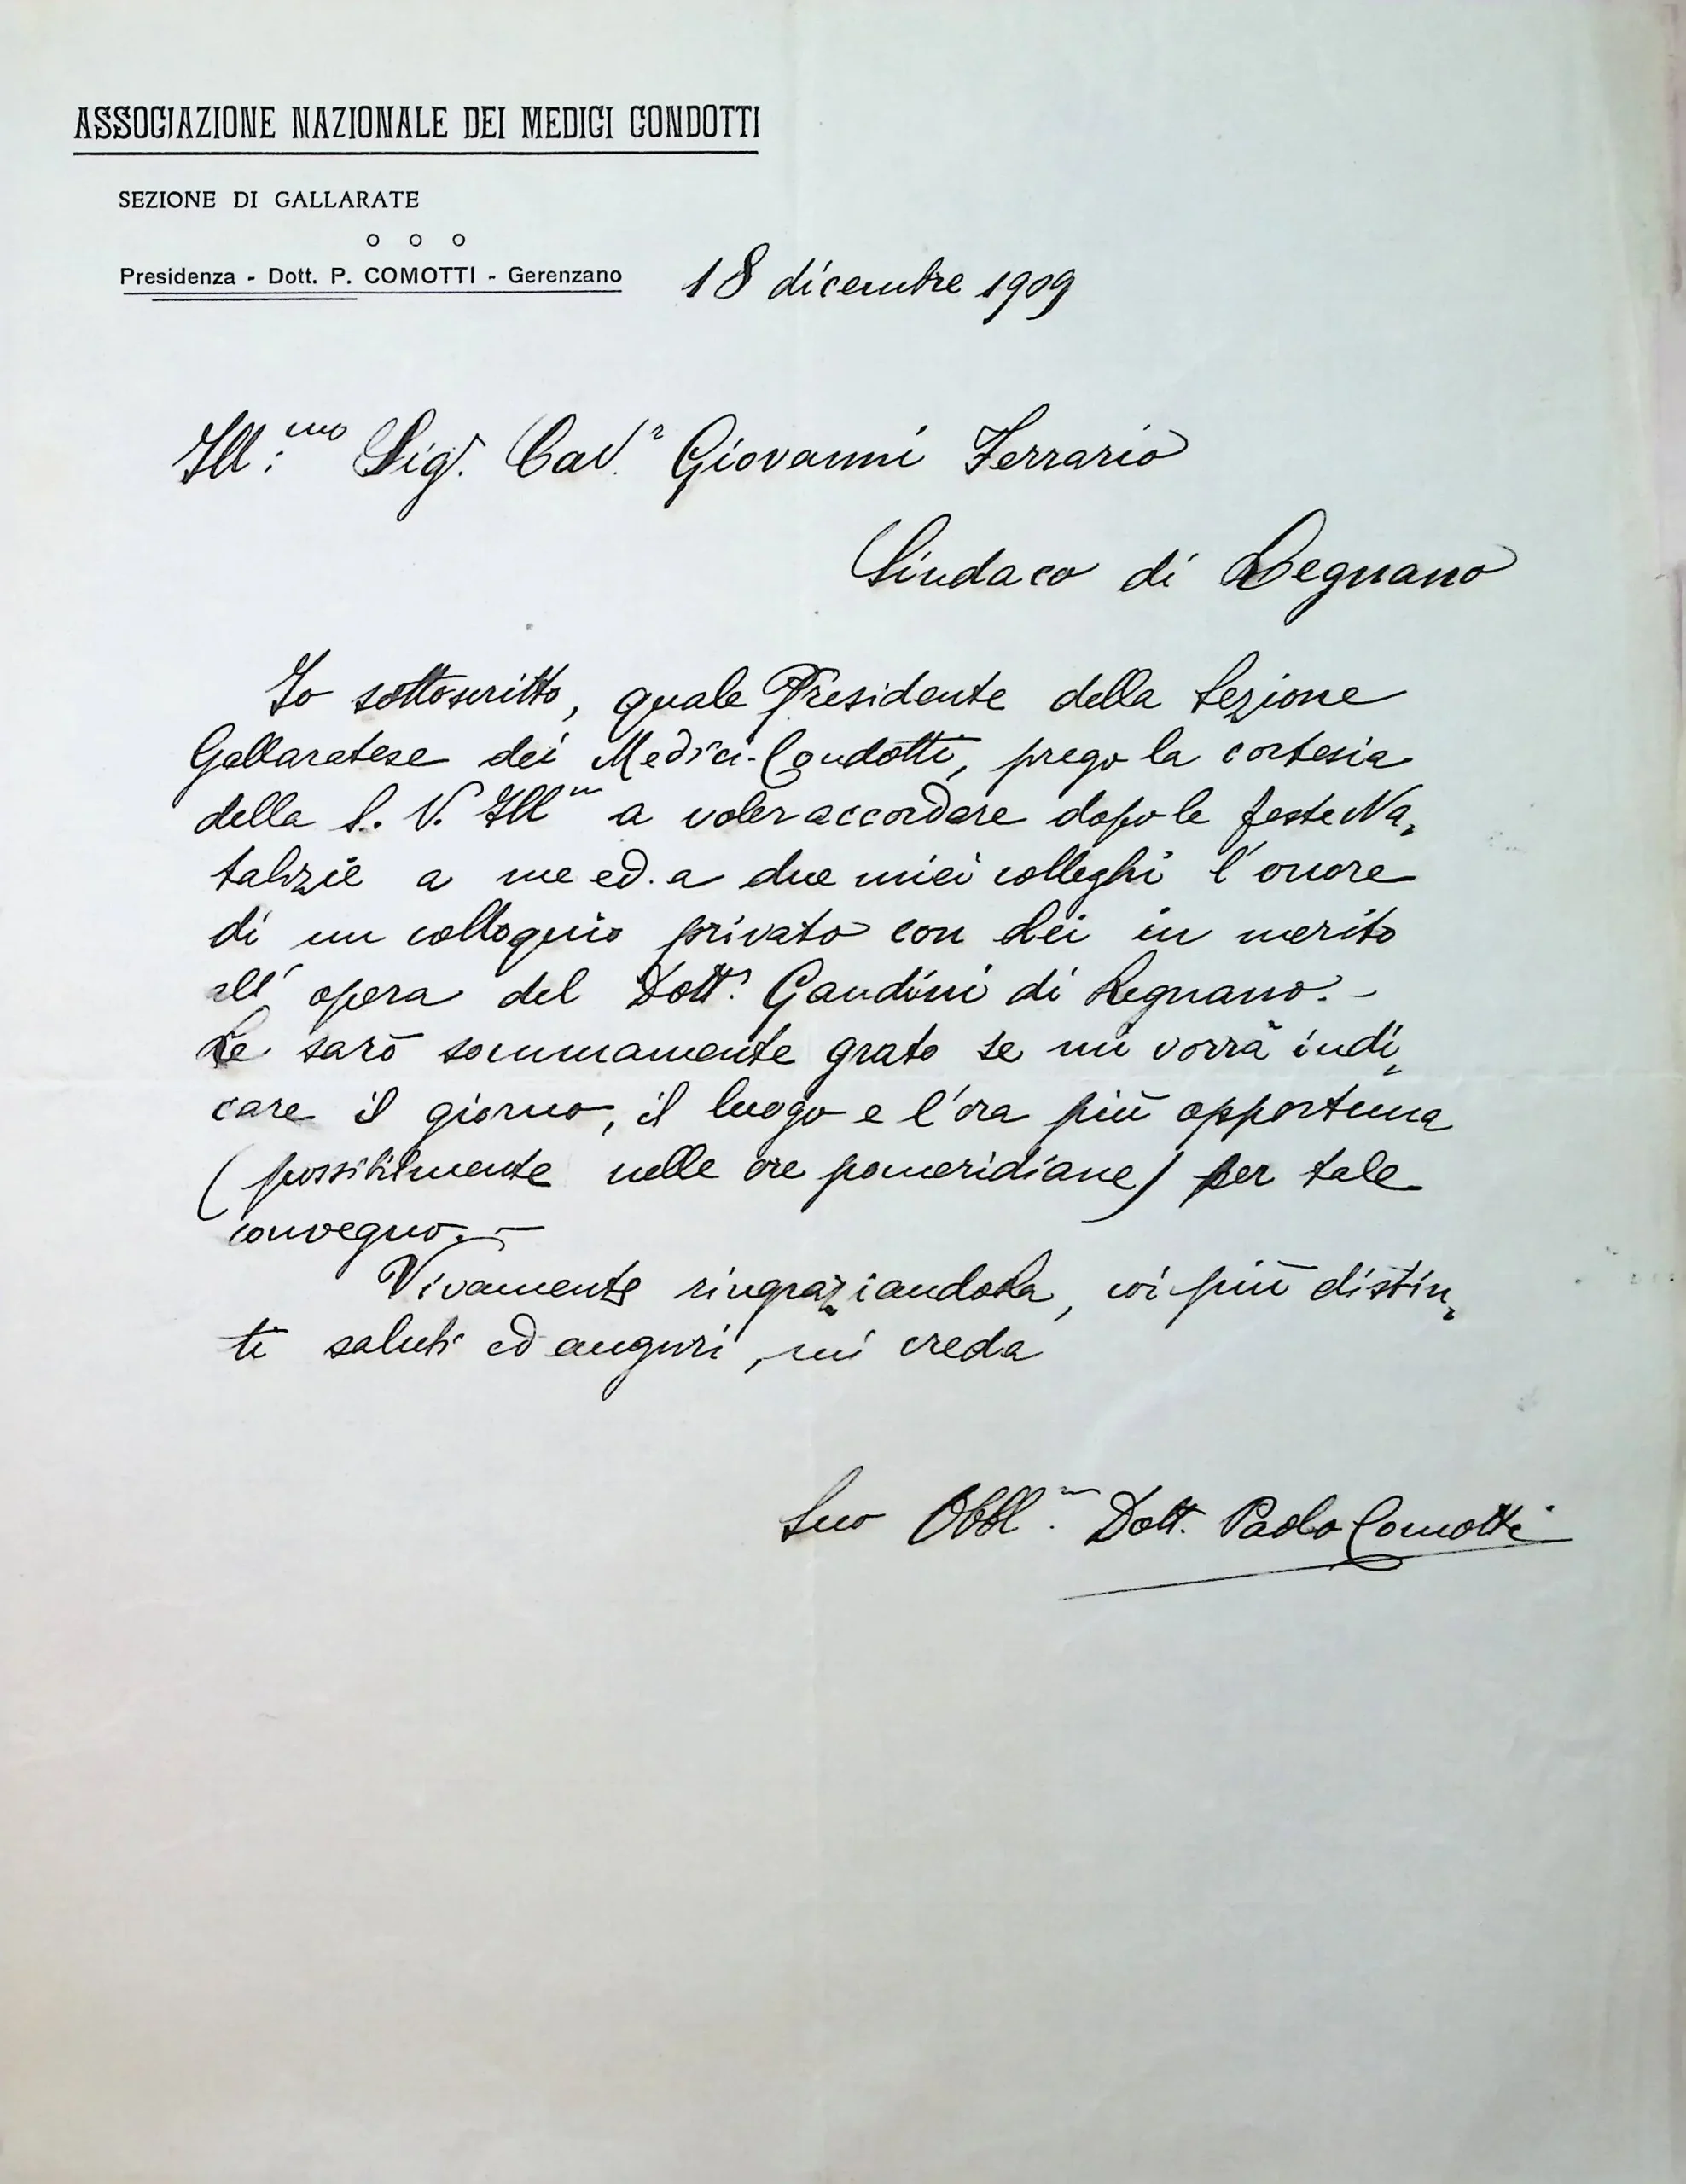 ASSOCIAZIONE NAZIONALE DEI MEDICI CONDOTTI
SEZIONE DI GALLARATE
Presidenza - Dott. P. COMOTTI - Gerenzano
18 dicembre 1909
Ill:mo Sig. Cav.r Giovanni Ferrario
Sindaco di Legnano
Io sottoscritto, quale Presidente della Sezione
Gallaratese dei Medici-Condotti, prego la cortesia
della S. V. Illm a voler accordare dopo le feste Na=
talizie a me ed a due miei colleghi l'onore
di un colloquio privato con Lei in merito
all'opera del Dott. Gandini di Legnano. -
Le sarò sommamente grato se mi vorrà indi=
care il giorno, il luogo e l'ora più opportuna
(possibilmente nelle ore pomeridiane) per tale
convegno. -
Vivamente ringraziandola, coi più distin=
ti saluti ed auguri, mi creda
Suo Obbl.m Dott. Paolo Comotti